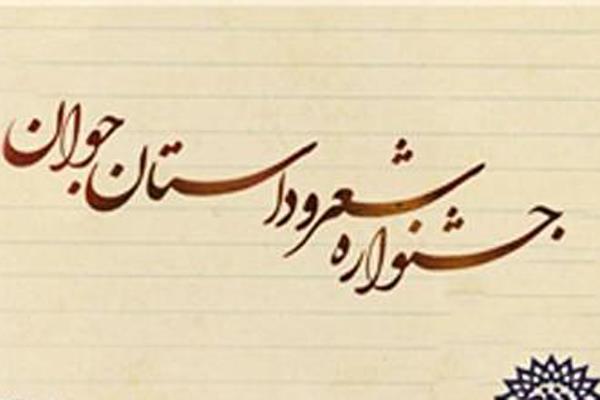 جشنواره شعر و داستان جوان